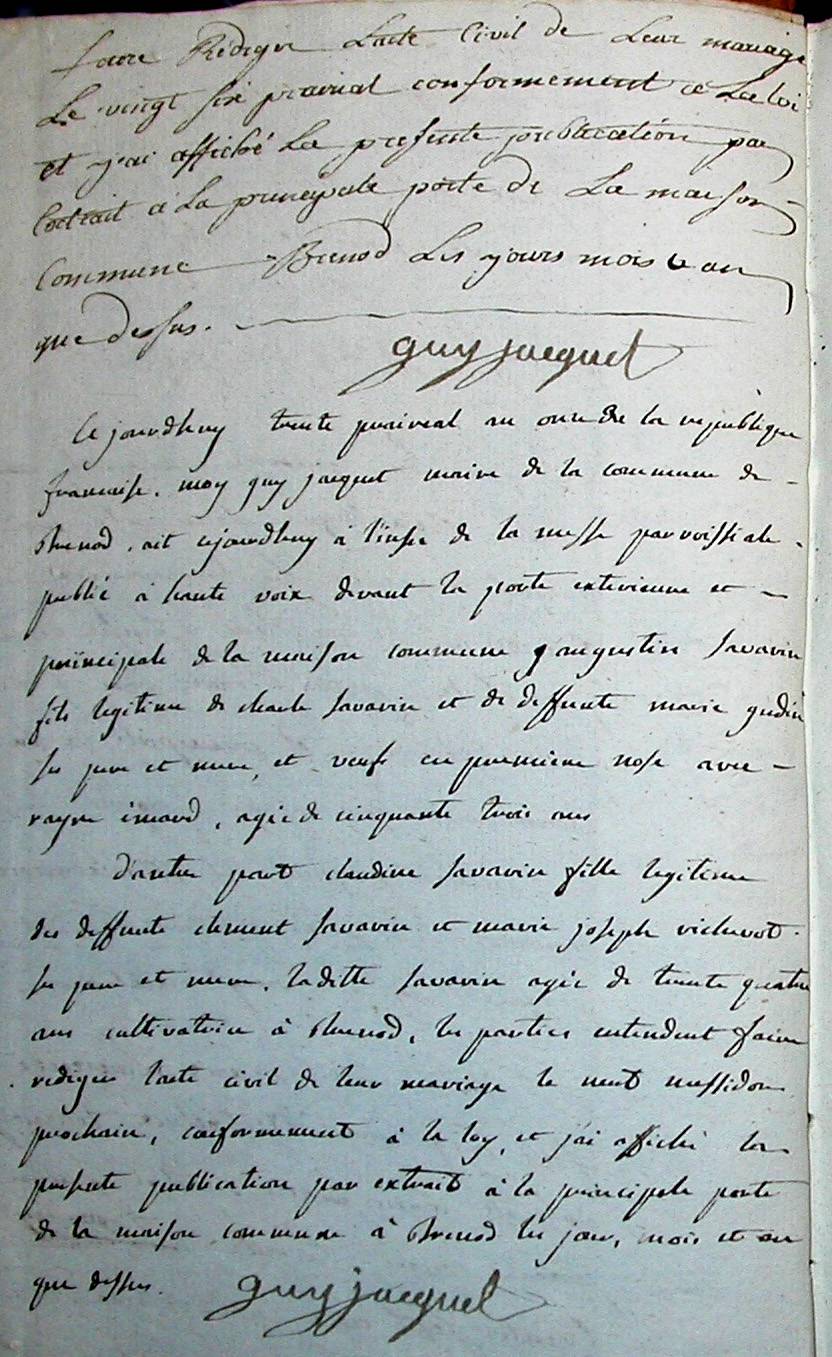 faire Rediger Lacte Civil de Leur mariage
Le vingt six prairial conformement a La loi
et j'ai affiché La presente publication par
Extrait a La principale porte de La maison
Commune Brenod Les jours mois & an
que dessus.
guy jacquet
Ce jourdhuy trente prairial an onze de la republique
francaise. moy guy jacquet maire de la commune de
Brenod. ait cejourdhuy à l'issue de la messe parroissiale
publié à haute voix devant la porte exterieure et
principale de la maison commune augustin Savarin
fils legitime de charle Savarin et de deffunte marie gudin
ses pere et mere, et veuf en premiere nose avec
rayne imard, agée de cinquante trois ans
D'autre part claudine Savarin fille legitime
des deffunte clement Savarin et marie joseph
ses pere et mere. ladette Savarin agée de trente quatre
ans cultivatrice à Brenod, les parties entendent faire
rediger lacte civil de leur mariage le neuf messidor
prochain, conformement à la loy, et j'ai affiché la
presente publication par extrait à la principale porte
de la maison commune à Brenod les jour, mois et an
que dessus. guy jacquet